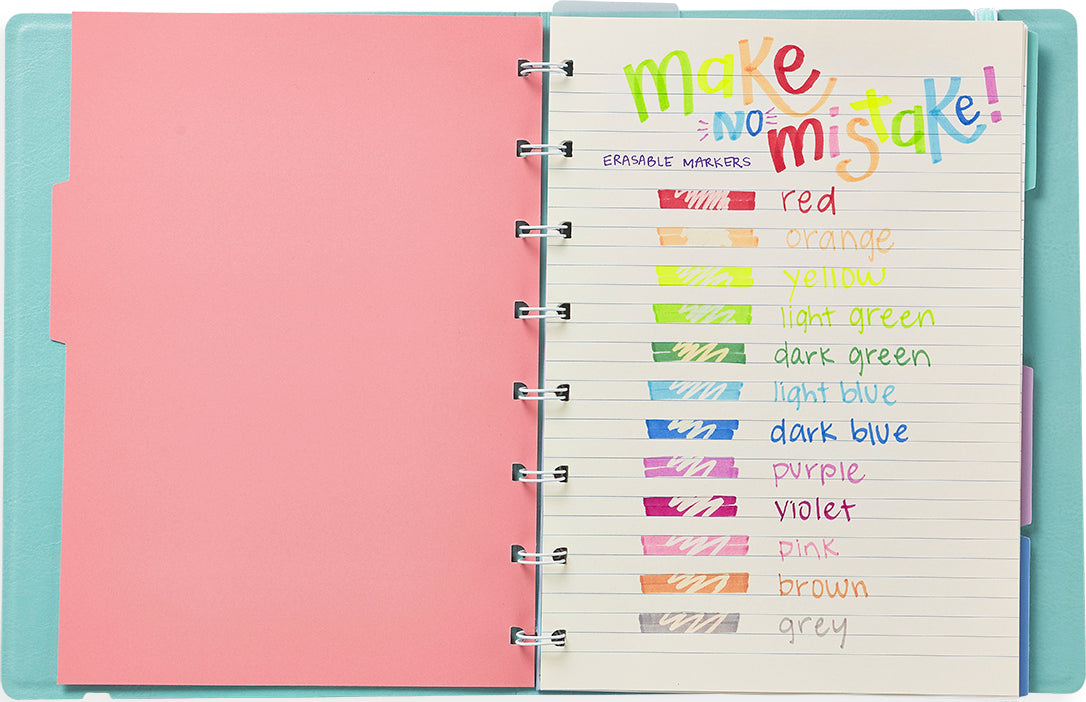 make
NO mistake!
ERASABLE MARKERS
red
orange
yellow
light green
dark green
light blue
dark blue
purple
violet
pink
brown
grey